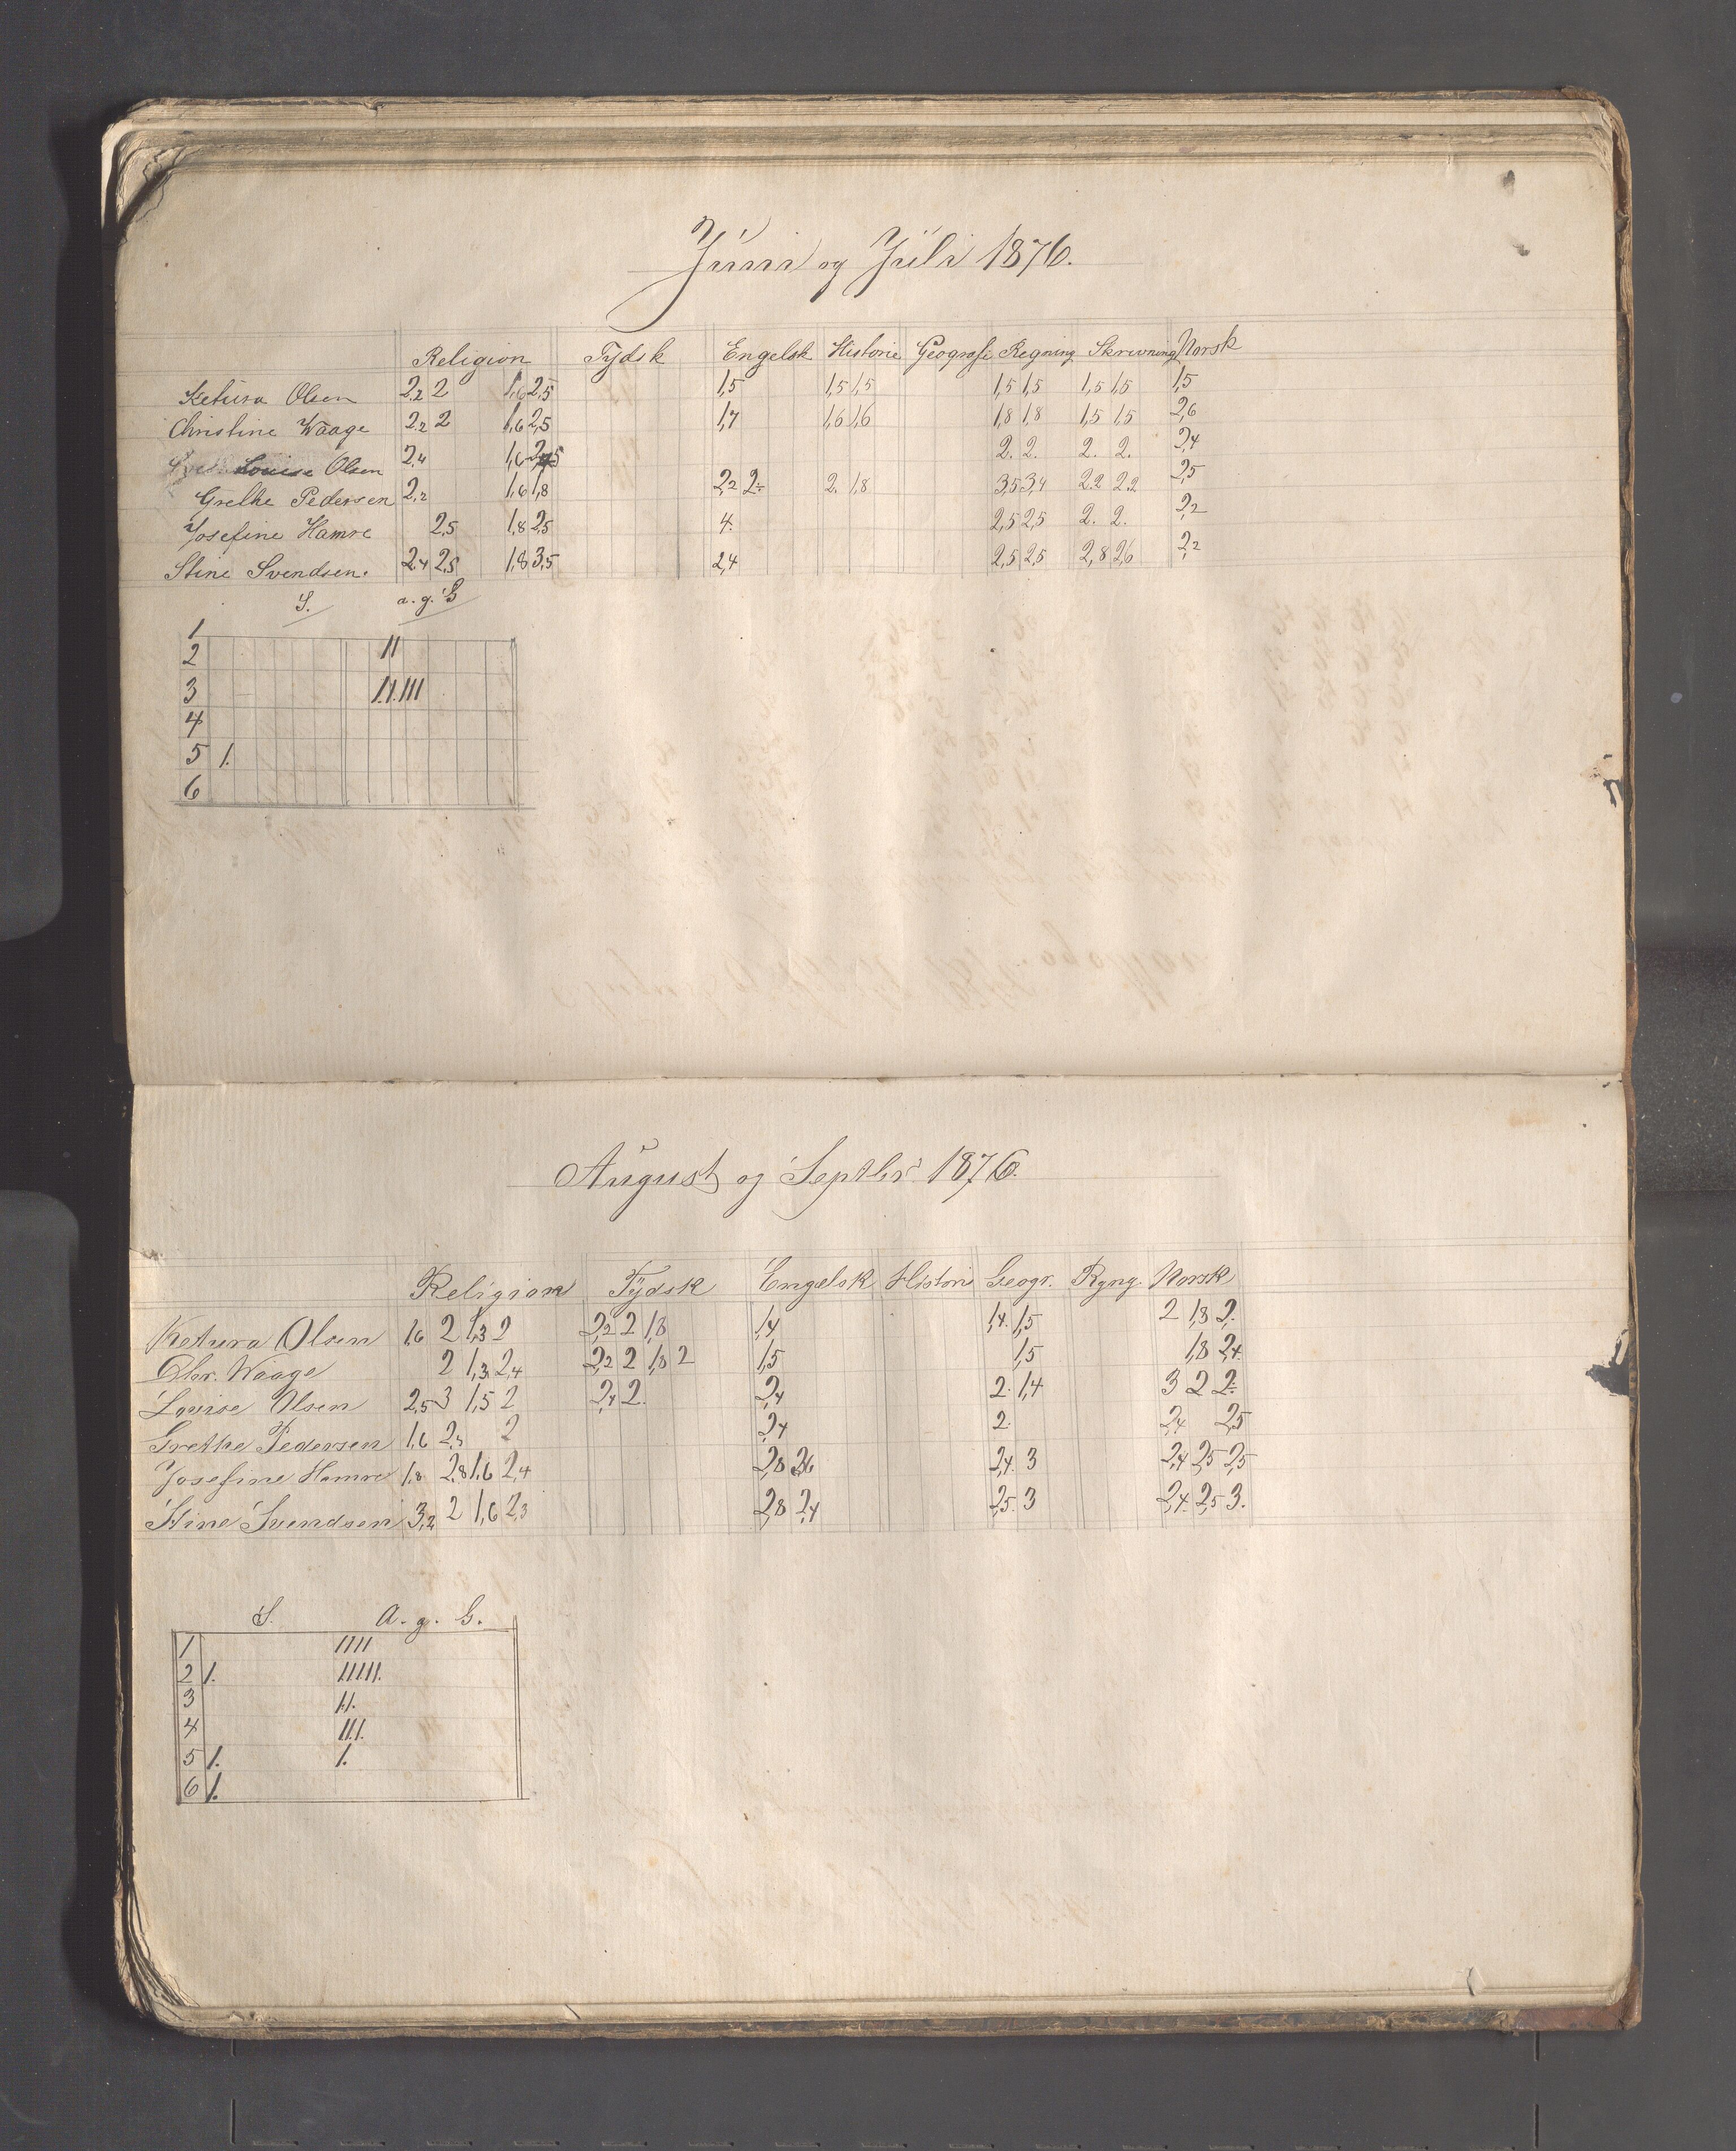 Juni og Juli 1876.
Religion Tydsk Engelsk Historie Geografi Regning Skrivning Norsk
Ketura Olsen 2,2 2 1,6 2,5 1,5 1,5 1,5 1,5 1,5 1,5 1,5 1,5
Christine Waage 2,2 2 1,6 2,5 1,7 1,6 1,6 1,8 1,8 1,5 1,5 2,6
Louise Olsen 2,4 1,6 2. 2. 2. 2. 2,4
Grethe Pedersen 2,2 1,6 1,8 2,2 2 2. 1,8 3,5 3,4 2,2 2,2 2,5
Josefine Hamre 2,5 1,8 2,5 4. 2,5 2,5 2. 2. 2,2
Stine Svendsen. 2,4 2,5 1,8 3,5 2,4 2,5 2,5 2,8 2,6 2,2
S. a. g. G
1
2 II
3 I.I.III
4
5 1.
6
August og Septbr 1876.
Religion Tydsk Engelsk Histori Geogr. Rgng. Norsk
Ketura Olsen 1,6 2 1,3 2 2,2 2 1,8 1,4 1,4. 1,5 2 1,8 2.
Chr. Waage 2 1,3 2,4 2,2 2 1,8 2 1,5 1,5 1,8 2,4.
Louise Olsen 2,5 3 1,5 2 2,4 2. 2,4 2. 1,4 3 2 2.
Grethe Pedersen 1,6 2,5 2 2,4 2. 2,4 2,5
Josefine Hamre 1,8 2,8 1,6 2,4 2,8 2,6 2,4. 3 2,4 2,5 2,5
Stine Svendsen 3,2 2 1,6 2,3 2,8 2,4 2,5. 3 2,4. 2,5 3.
S. A. g. G.
1 IIII
2 1. IIIII.
3 II.
4 III.
5 1. 1.
6 1.